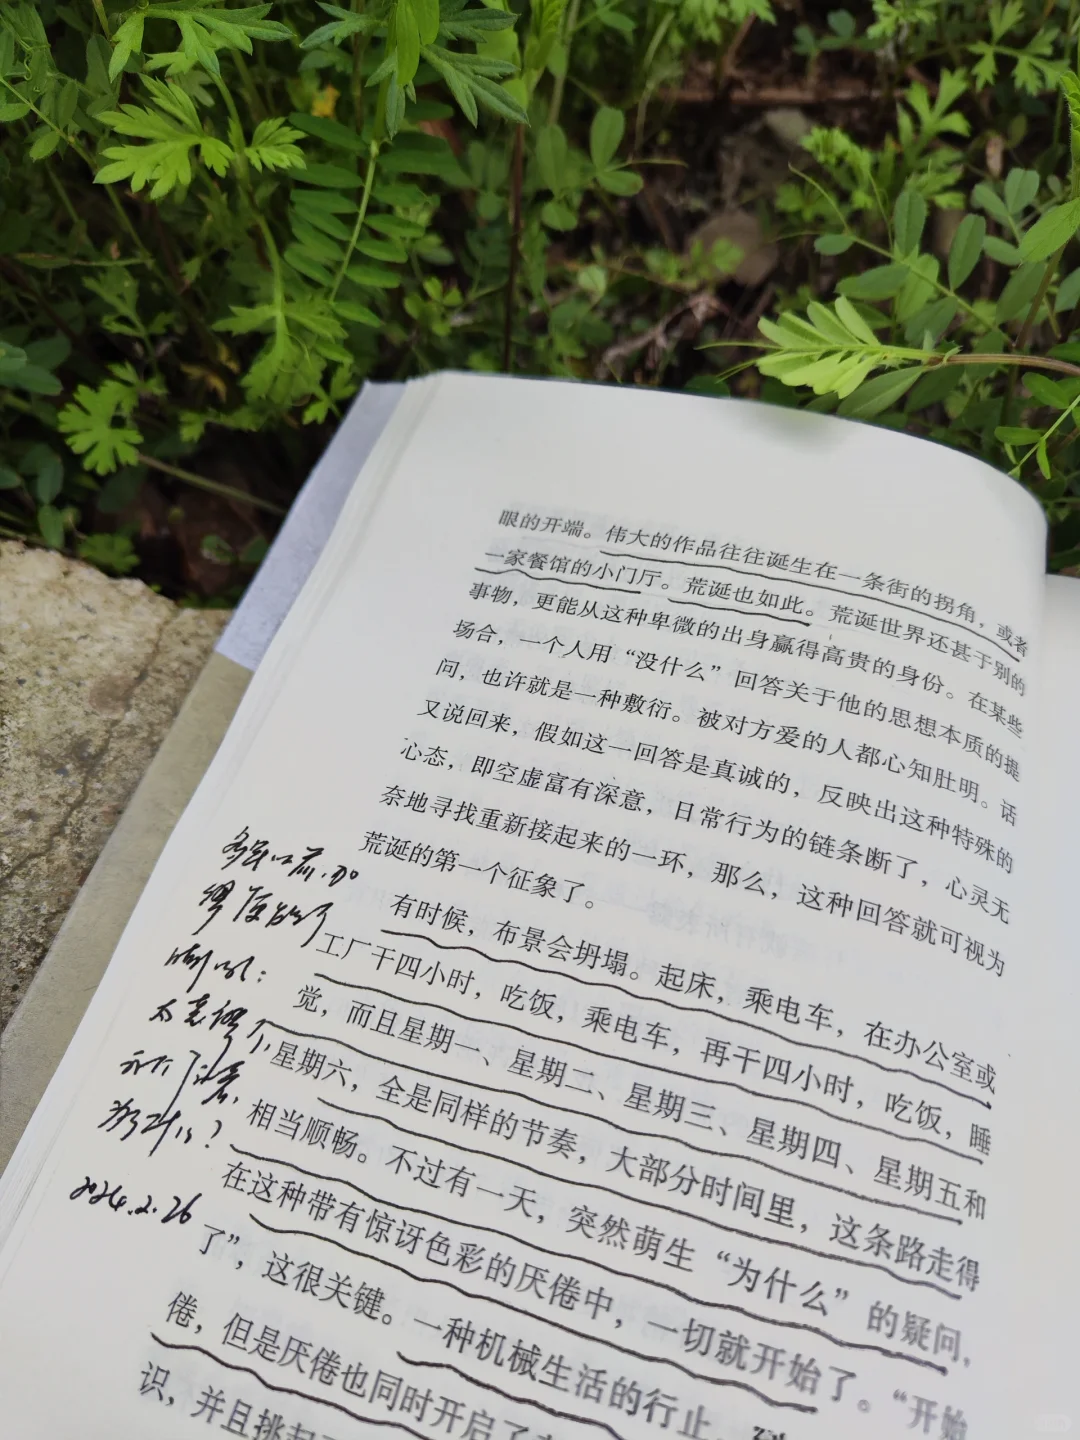 眼的开端。伟大的作品往往诞生在一条街的拐角，或者
一家餐馆的小门厅。荒诞也如此。荒诞世界还甚于别的
事物，更能从这种卑微的出身赢得高贵的身份。在某些
场合，一个人用“没什么”回答关于他的思想本质的提
问，也许就是一种敷衍。被对方爱的人都心知肚明。话
又说回来，假如这一回答是真诚的，反映出这种特殊的
心态，即空虚富有深意，日常行为的链条断了，心灵无
奈地寻找重新接起来的一环，那么，这种回答就可视为
荒诞的第一个征象了。
有时候，布景会坍塌。起床，乘电车，在办公室或
工厂干四小时，吃饭，乘电车，再干四小时，吃饭，睡
觉，而且星期一、星期二、星期三、星期四、星期五和
星期六，全是同样的节奏，大部分时间里，这条路走得
相当顺畅。不过有一天，突然萌生“为什么”的疑问，
在这种带有惊讶色彩的厌倦中，一切就开始了。“开始
了”，这很关键。一种机械生活的行止，
倦，但是厌倦也同时开启了
识，并且挑起
为了什么？
2024.2.26